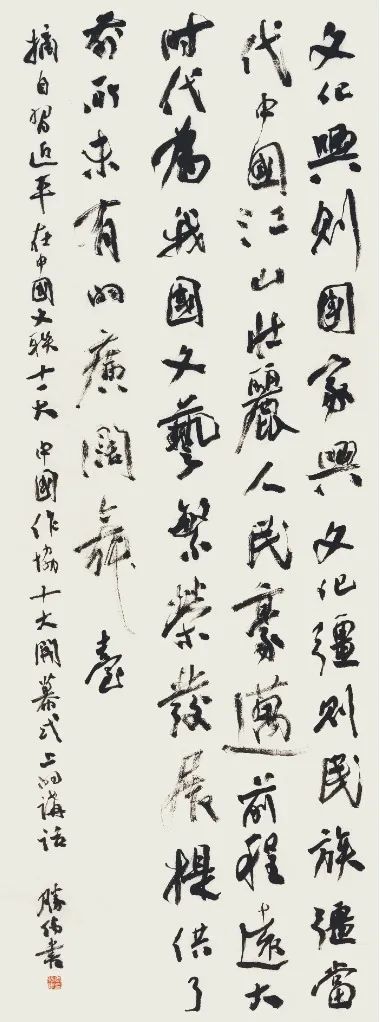 文化興則國家興文化彊則民族彊當
代中國江山壯麗人民豪邁前程遠大
时代為我國文藝繁榮發展提供了
前所未有的廣闊舞臺
摘自習近平在中國文联十一大中國作協十大開幕式上的講话 勝偉書